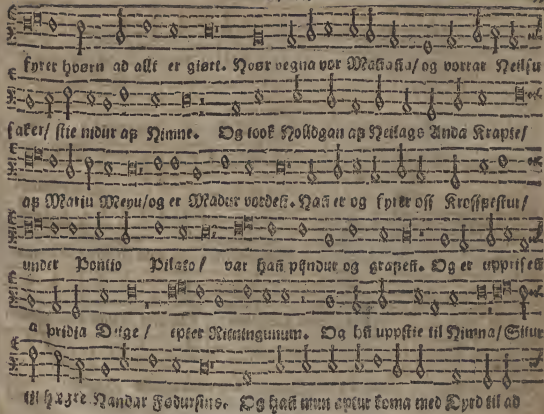 fyrer hvørn ad allt er giørt. Hvør vegna vor Mañaña/ og vorrar Heilsu
saker/ stie nidur af Himne. Og took Holldgan af Heilags Anda Krapte/
af Mariu Meyu/ og er Madur vordeñ. Hañ er og fyrer oss Krossfestur/
under Pontio Pilato/ var hañ pyndur og grafeñ. Og er uppriseñ
a þridja Deige/ epter Ritningunum. Og hñ uppstie til Himna/ Situr
til hægre Handar Fødursins. Og hañ mun aptur koma med Dyrd til ad